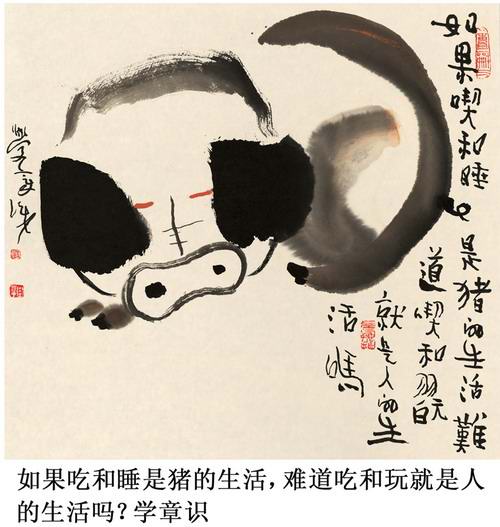 如果喫和睡也是猪的生活難
道喫和翫
就是人的生
活嗎
學章识
如果吃和睡是猪的生活，难道吃和玩就是人
的生活吗？学章识